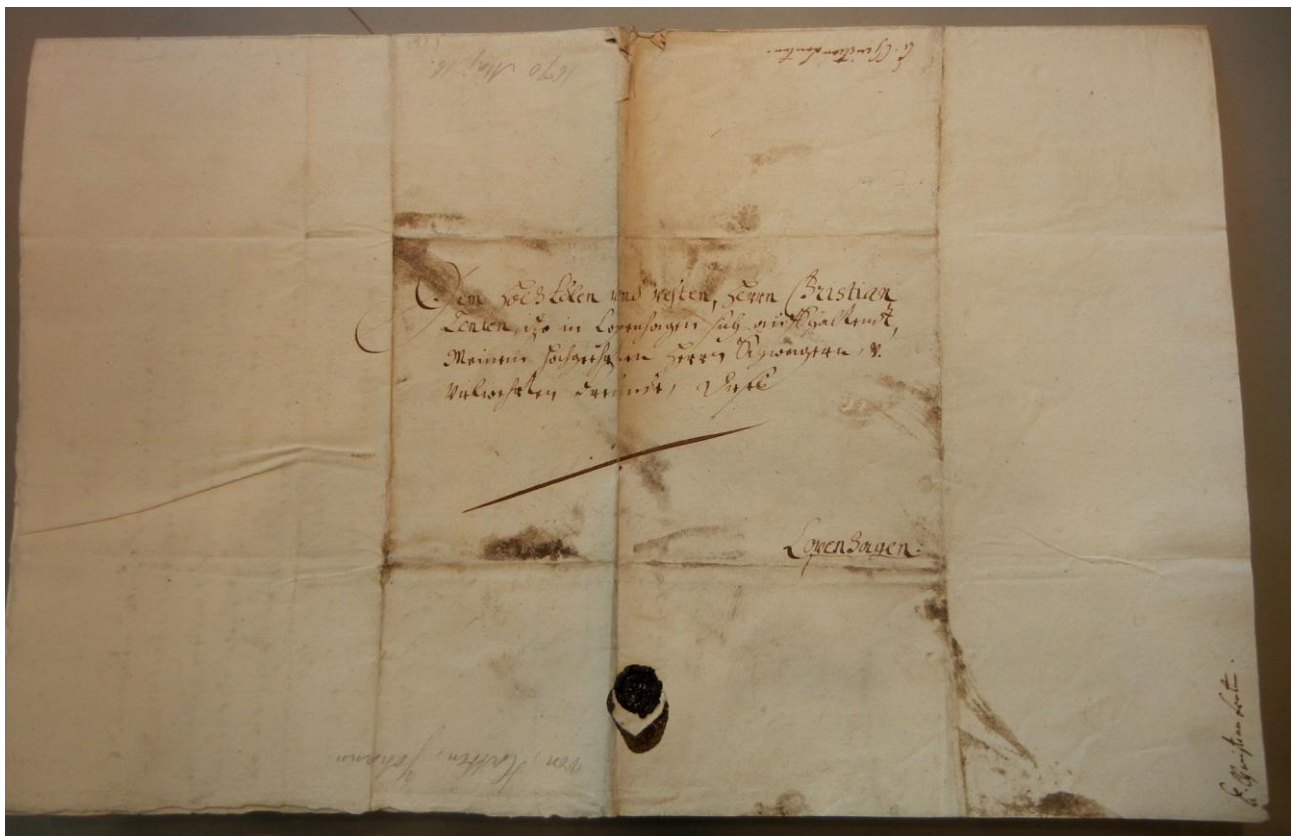 1670 Maj 16.
Dem HochEdlen und Vesten, Herrn Christian
Lenten, itzo in Copenhagen sich auffhaltendt,
Meinem hochgeehrten Herrn Schwagern, v.
Vielwehrten Freunde,
Copenhagen.
von Hatten, Johann